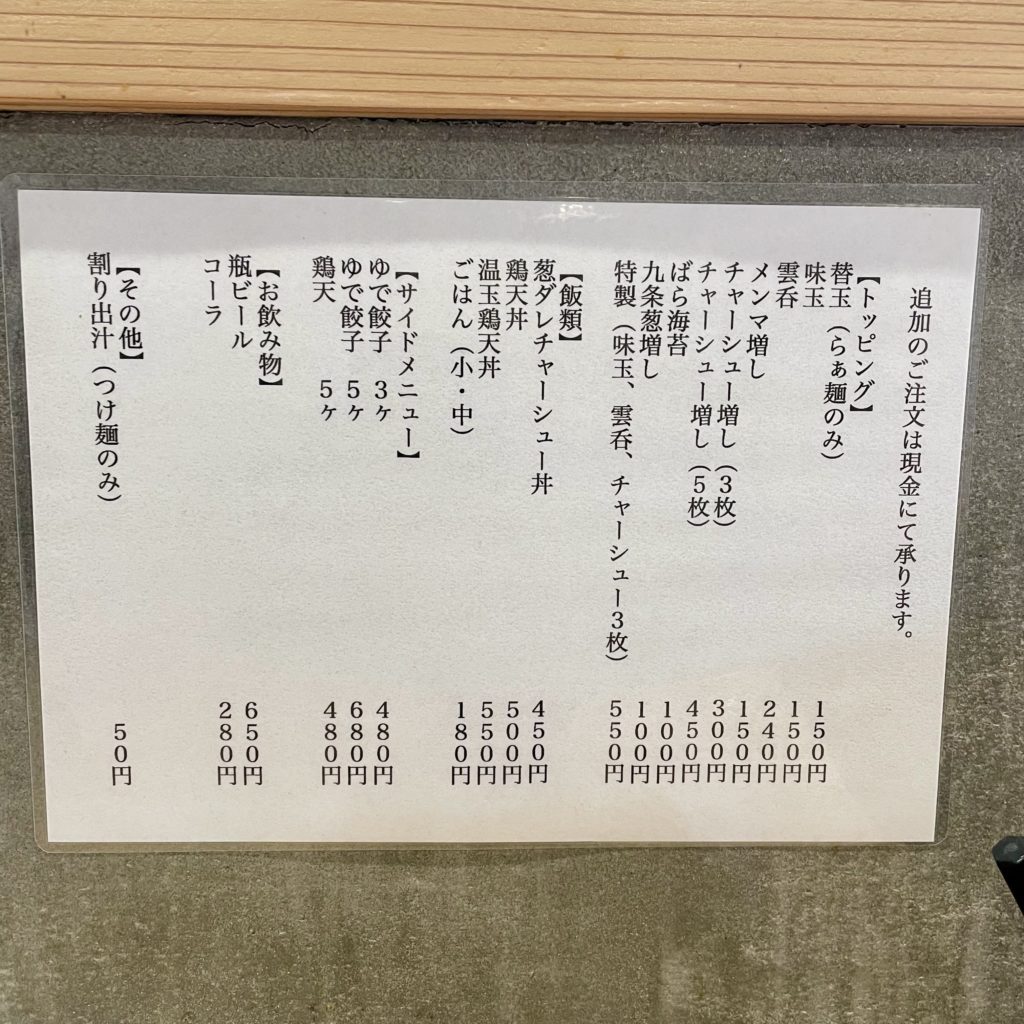 追加のご注文は現金にて承ります。
【トッピング】
替玉（らぁ麺のみ） 150円
味玉 150円
雲呑 240円
メンマ増し 150円
チャーシュー増し（3枚） 300円
チャーシュー増し（5枚） 450円
ばら海苔 100円
九条葱増し 100円
特製（味玉、雲呑、チャーシュー3枚） 550円
【飯類】
葱ダレチャーシュー丼 450円
鶏天丼 500円
温玉鶏天丼 550円
ごはん（小・中） 180円
【サイドメニュー】
ゆで餃子 3ヶ 480円
ゆで餃子 5ヶ 680円
鶏天 5ヶ 480円
【お飲み物】
瓶ビール 650円
コーラ 280円
【その他】
割り出汁（つけ麺のみ） 50円